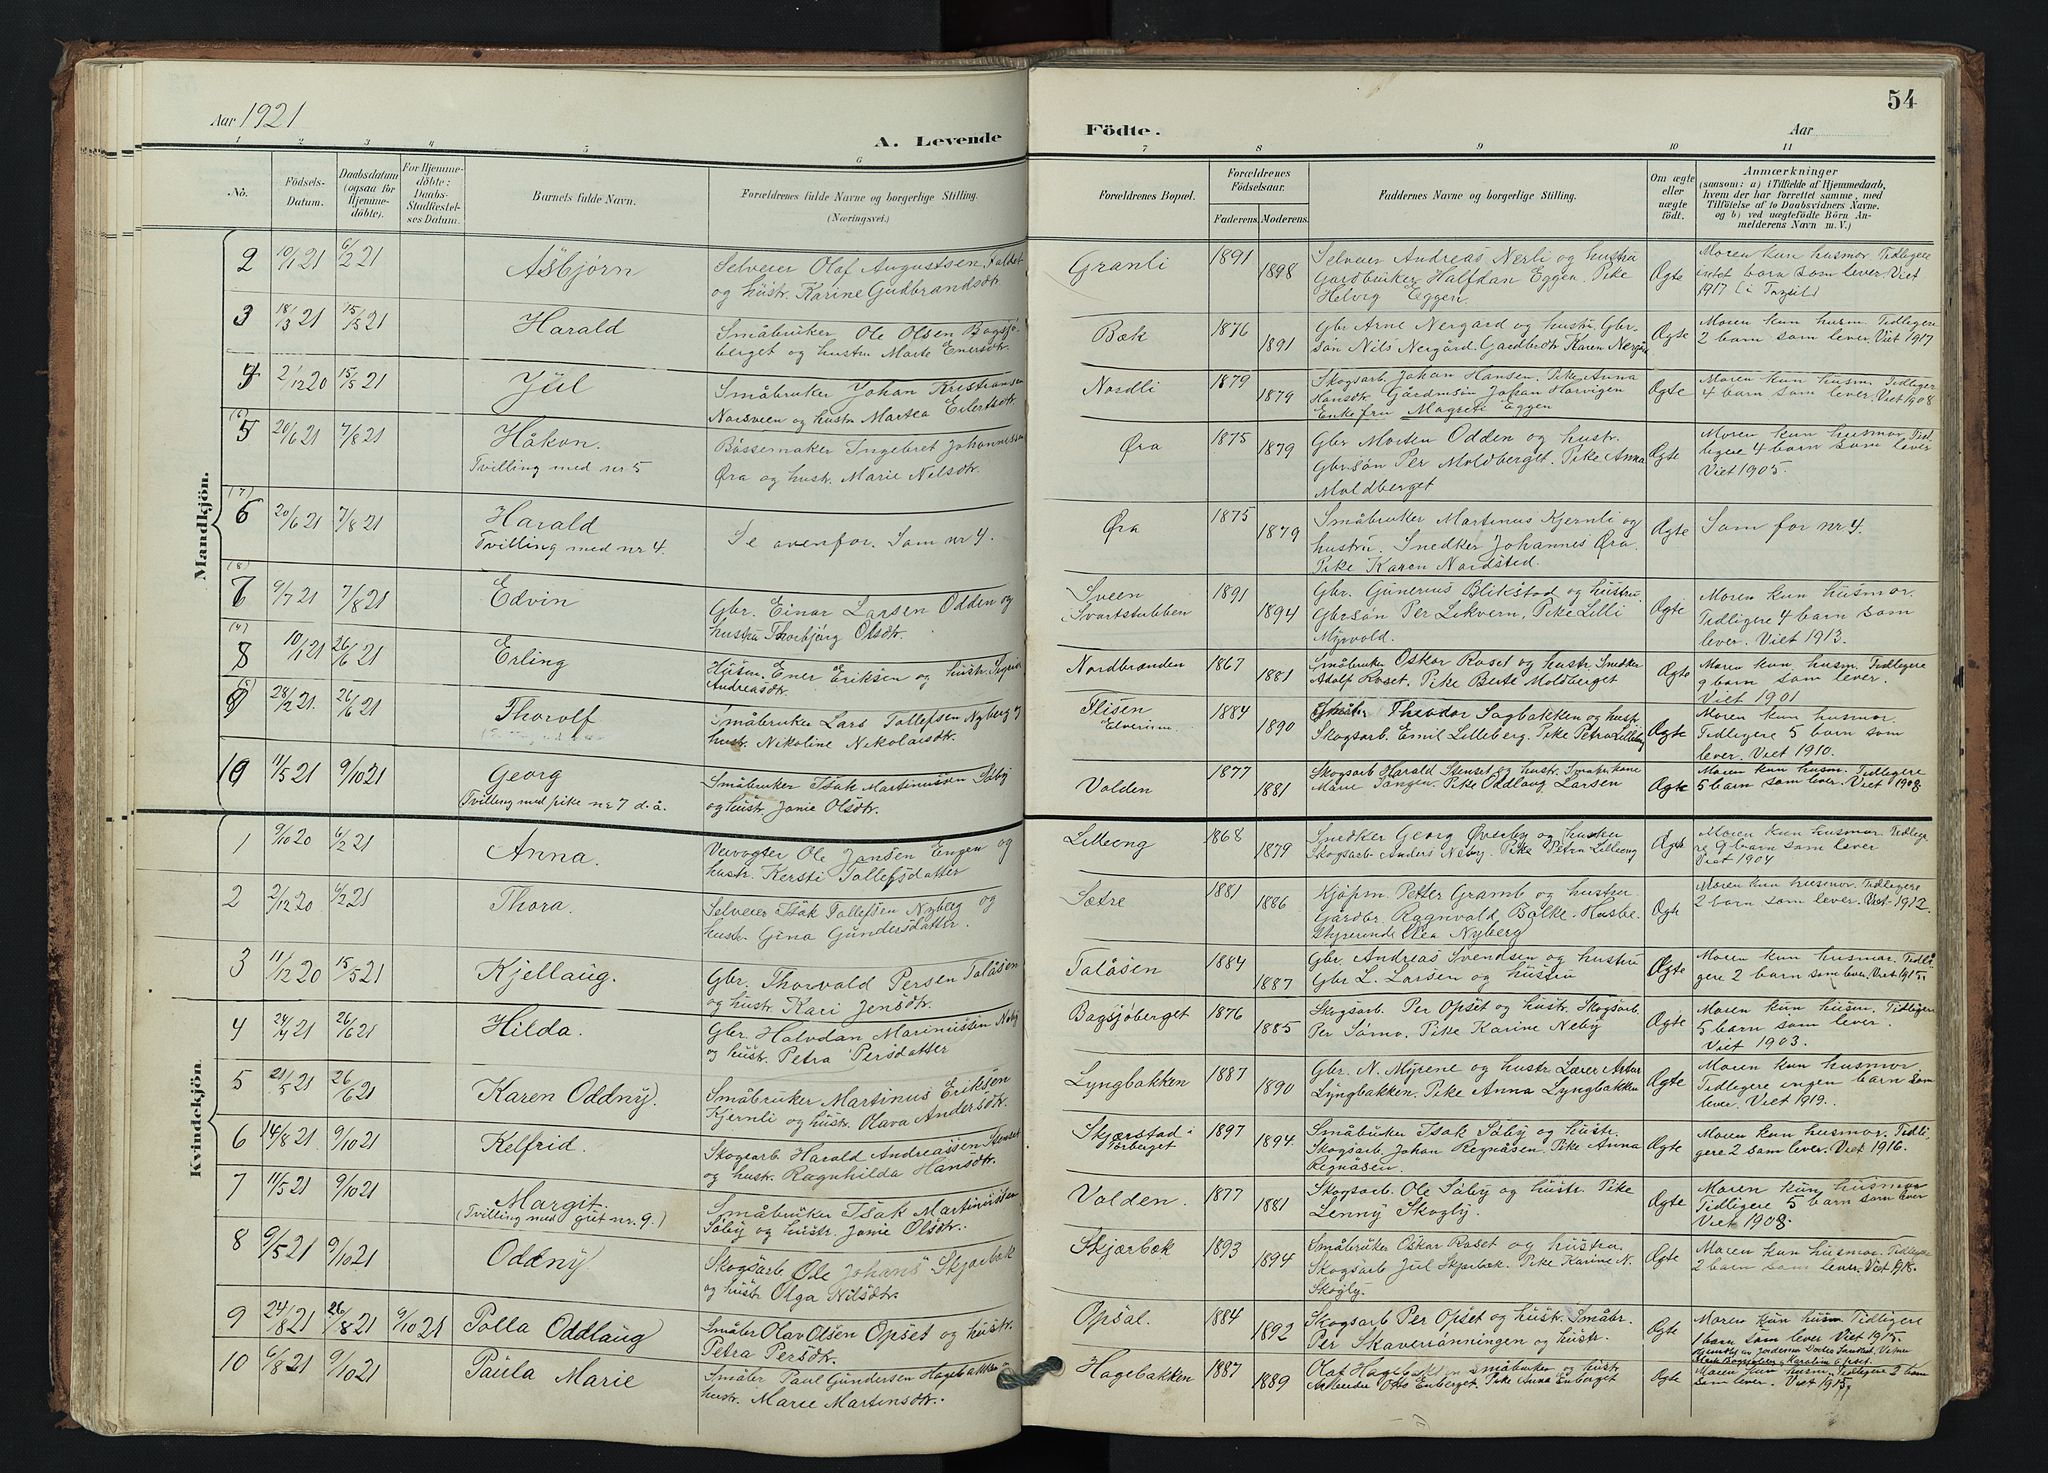 Aar 1921
A. Levende
1 2 3 4 5 6
No.
Födsels-Datum.
Daabsdatum (ogsaa for Hjemme-döbte).
For Hjemme-döbte: Daabs-Stadfæstel-ses Datum.
Barnets fulde Navn.
Forældrenes fulde Navne og borgerlige Stilling.
(Næringsvei.)
Mandkjön.
2 10/1 21 6/2 21 Åsbjørn Selveier Olaf Augustsen
og hustr. Karine Gudbrandsdtr.
3 18/3 21 15/5 21 Harald Småbruker Ole Olsen Bagsjö-
berget og hustru Marte Enersdtr.
4 2/12 20 15/5 21 Jul Småbruker Johan Kristiansen
Norsveen og hustr. Martea Eilertsdtr.
(6)
5 20/6 21 7/8 21 Håkon. Bössemaker Ingebret Johannessen
Tvilling med nr 5 Øra og hustr. Marie Nilsdtr.
(7)
6 20/6 21 7/8 21 Harald Se ovenfor. Som nr 4.
Tvilling med nr 4.
(8)
7 9/7 21 7/8 21 Edvin Gbr. Einar Larsen Odden og
hustru Thorbjørg Olsdtr.
(4)
8 10/1 21 26/6 21 Erling Husm. Ener Eriksen og hustr. Sigrid
Andreasdtr.
(5)
9 28/2 21 26/6 21 Thorolf Småbruker Lars Tollefsen Nyberg og
hustr. Nikoline Nikolaisdtr.
10 11/5 21 9/10 21 Georg Småbruker Isak Martinussen Säby
Tvilling med pike nr 7 d.å. og hustr. Janie Olsdtr.
Kvindekjön
1 9/10 20 6/2 21 Anna. Veivogter Ole Jansen Engen og
hustr. Kersti Tollefsdatter
2 2/12 20 6/2 21 Thora. Selveier Isak Tollefsen Nyberg og
hustr. Gina Gundersdatter.
3 11/12 20 15/5 21 Kjellaug. Gbr. Thorvald Persen Talåsen
og hustr. Kari Jensdtr.
4 24/4 21 26/6 21 Hilda. Gbr. Halvdan Marinussen Neby
og hustr. Petra Persdatter
5 21/5 21 26/6 21 Karen Oddny. Småbruker Martinus Eriksen
Kjernli og hustr. Olava Andersdtr.
6 14/8 21 9/10 21 Kelfrid. Skogsarb. Harald Andreassen Stenset
og hustr. Ragnhilda Hansdtr.
7 11/5 21 9/10 21 Margit. Småbruker Isak Martinussen
(Tvilling med gut nr. 9.) Säby og hustr. Janie Olsdtr.
8 9/5 21 9/10 21 Oddny Skogsarb. Ole Johans. Skjærbæk
og hustr. Olga Nilsdtr.
9 24/8 21 26/8 21 9/10 21 Polla Oddlaug Småbr Olav Olsen Opset og hustr.
Petra Persdtr.
10 6/8 21 9/10 21 Paula Marie Småbr Paul Gundersen Hagebakken og
hustr. Marie Martinsdtr.
54
Födte.
Aar
7 8 9 10 11
Forældrenes Bopæl.
Forældrenes Födselsaar.
Faderens. Moderens.
Faddernes Navne og borgerlige Stilling.
Om ægte eller uægte födt.
Anmærkninger
(saasom: a) i Tilfælde af Hjemmedaab,
hvem der har forrettet samme, med
Tilföielse af to Daabsvidners Navne.
og b) ved uægtefödte Börn An-
melderens Navn m. V.)
Granli 1891 1898 Selveier Andreas Nerli og hustru
Gardbruker Halfdan Eggen. Pike
Helvig Eggen.
Ægte Moren kun husmor Tidligere
intet barn som lever. Viet
1917 (i Trysil)
Bæk 1876 1891 Gbr Arne Nergård og hustr. Gbr.
søn Nils Nergård. Gardbrdtr Karen Nergård
Ægte Moren kun husm. Tidligere
2 barn som lever. Viet 1917
Nordli 1879 1879 Skogsarb. Johan Hansen. Pike Anna
Hansdtr Gårdmsøn Johan Harvigen
Enkefru Magrete Eggen
Ægte Moren kun husm. Tidligere
4 barn som lever. Viet 1908
Øra 1875 1879 Gbr Morten Odden og hustr.
Gbr.søn Per Moldberget. Pike Anna
Moldberget
Ægte Moren kun husmor. Tid-
ligere 4 barn som lever
Viet 1905.
Øra 1875 1879 Småbruker Martinus Kjernli og
hustru. Snedker Johannes Øra.
Pike Karen Nordsted.
Ægte Som for nr 4.
Sveen
Svartstubben 1891 1894 Gbr. Gunerius Blikstad og hustru
Gbrsøn Per Lekvern, Pike Lilli
Myrvold.
Ægte Moren kun husmor.
Tidligere 4 barn som
lever. Viet 1913.
Nordbrænden 1867 1881 Småbruker Oskar Roset og hustr. Snedker
Adolf Roset. Pike Berte Moldberget
Ægte Moren kun husm. Tidligere
9 barn som lever.
Viet 1901
Flisen
Elverum. 1884 1890 Theodor Sagbakken og hustr.
Skogsarb. Emil Lilleberg. Pike Petra Lilleby
Ægte Moren kun husmor.
Tidligere 5 barn som
lever. Viet 1910.
Volden 1877 1881 Skogsarb Harald Stenset og hustr.
Marie Tangen. Pike Oddlaug Larsen
Ægte Moren kun husm. Tidligere
5 barn som lever. Viet 1908
Lilleeng 1868 1879 Snedker Georg Øverby og hustru
Skogsarb. Anders Neby. Pike Petra Lilleeng
Ægte Moren kun husmor. Tidlige-
re 9 barn som lever
Viet 1904
Sætre 1881 1886 Kjøpm. Petter Gramb og hustru
Gårdbr. Ragnvald Balke. Husbe-
styrerinde Olea Nyberg
Ægte Moren kun husmor. Tidligere
2 barn som lever. Viet 1912.
Talåsen 1884 1887 Gbr. Andreas Svendsen og hustru
Gbr L. Larsen og hustru
Ægte Moren kun husmor. Tidli-
gere 2 barn som lever. Viet 1915.
Bagsjöberget 1876 1885 Skogsarb. Per Opset og hustr. Skogsarb.
Per Sømo. Pike Karine Neby
Ægte Moren kun husm. Tidligere
5 barn som lever.
Viet 1903.
Lyngbakken 1887 1890 Gbr. N. Myrene og hustr. Lærer Artur
Lyngbakken. Pike Anna Lyngbakken
Ægte Moren kun husmor
Tidligere ingen barn som
lever. Viet 1919.
Skjærstad i
Törberget 1897 1894 Småbuker Isak Säby og hustr.
Skogsarb. Johan Regnåsen. Pike Anna
Regnåsen.
Ægte Moren kun husmor. Tidli-
gere 2 som lever. Viet 1916.
Volden. 1877 1881 Skogsarb. Ole Säby og hustr. Pike
Lenny Skogly.
Ægte Moren kun husmor
Tidligere 5 barn som lever
Viet 1908.
Skjærbæk 1893 1894 Småbruker Oskar Roset og hustru
Skogsarb Jul Skjærbæk. Pike Karine N.
Skogly.
Ægte Moren kun husmor. Tidligere
2 barn som lever. Viet 1918.
Opsal. 1884 1892 Skogsarb Per Opset og hustr. Småbr.
Per Skaverönningen og hustr.
Ægte Moren kun husm Tidligere
1 barn som lever Viet 1915.
Hjemdbt av Jordemor Dortea Sandhet. Vitner
Karoline Opset.
Hagebakken 1887 1889 Olaf Hagebakken småbruker og hustr
Arbeider Enberget. Pike Anna Enberget
Ægte Moren kun husm. Tidligere 2 barn
som lever. Viet 1915.